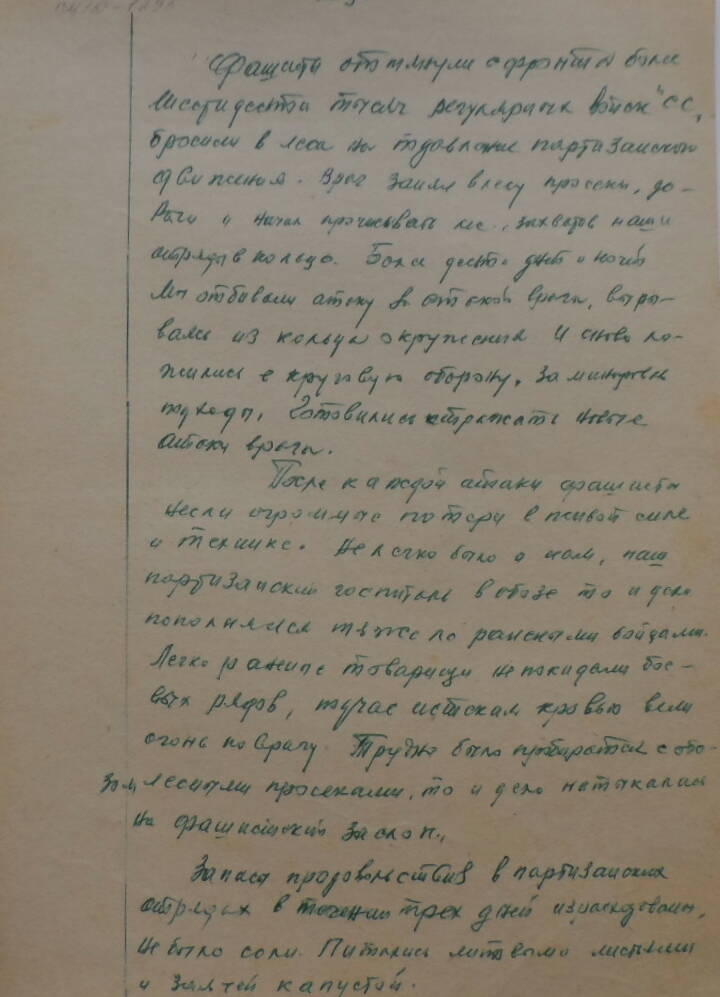 Фашисты оттянули с фронта более
шестидесяти тысяч регулярных войск "СС,
бросили в леса на подавление партизанского
движения. Враг занял в лесу просеки, до-
роги и начал прочесывать лес, захватив наши
отряды в кольцо. Более десяти дней и ночей
мы отбивали атаку за атакой врага, выры-
вались из кольца окружения и снова ло-
жились в круговую оборону, заминировав
подходы, готовились отражать новые
атаки врага.
После каждой атаки фашисты
несли огромные потери в живой силе
и технике. Нелегко было и нам, наш
партизанский госпиталь в обозе то и дело
пополнялся тяжело ранеными бойцами.
Легко раненые товарищи не покидали бое-
вых рядов, подчас истекая кровью вели
огонь по врагу. Трудно было пробираться с обо-
зом лесными просеками, то и дело натыкались
на фашистский заслон.
Запасы продовольствия в партизанских
отрядах в течении трех дней израсходованы,
не было соли. Питались липовыми листьями
и заячей капустой.